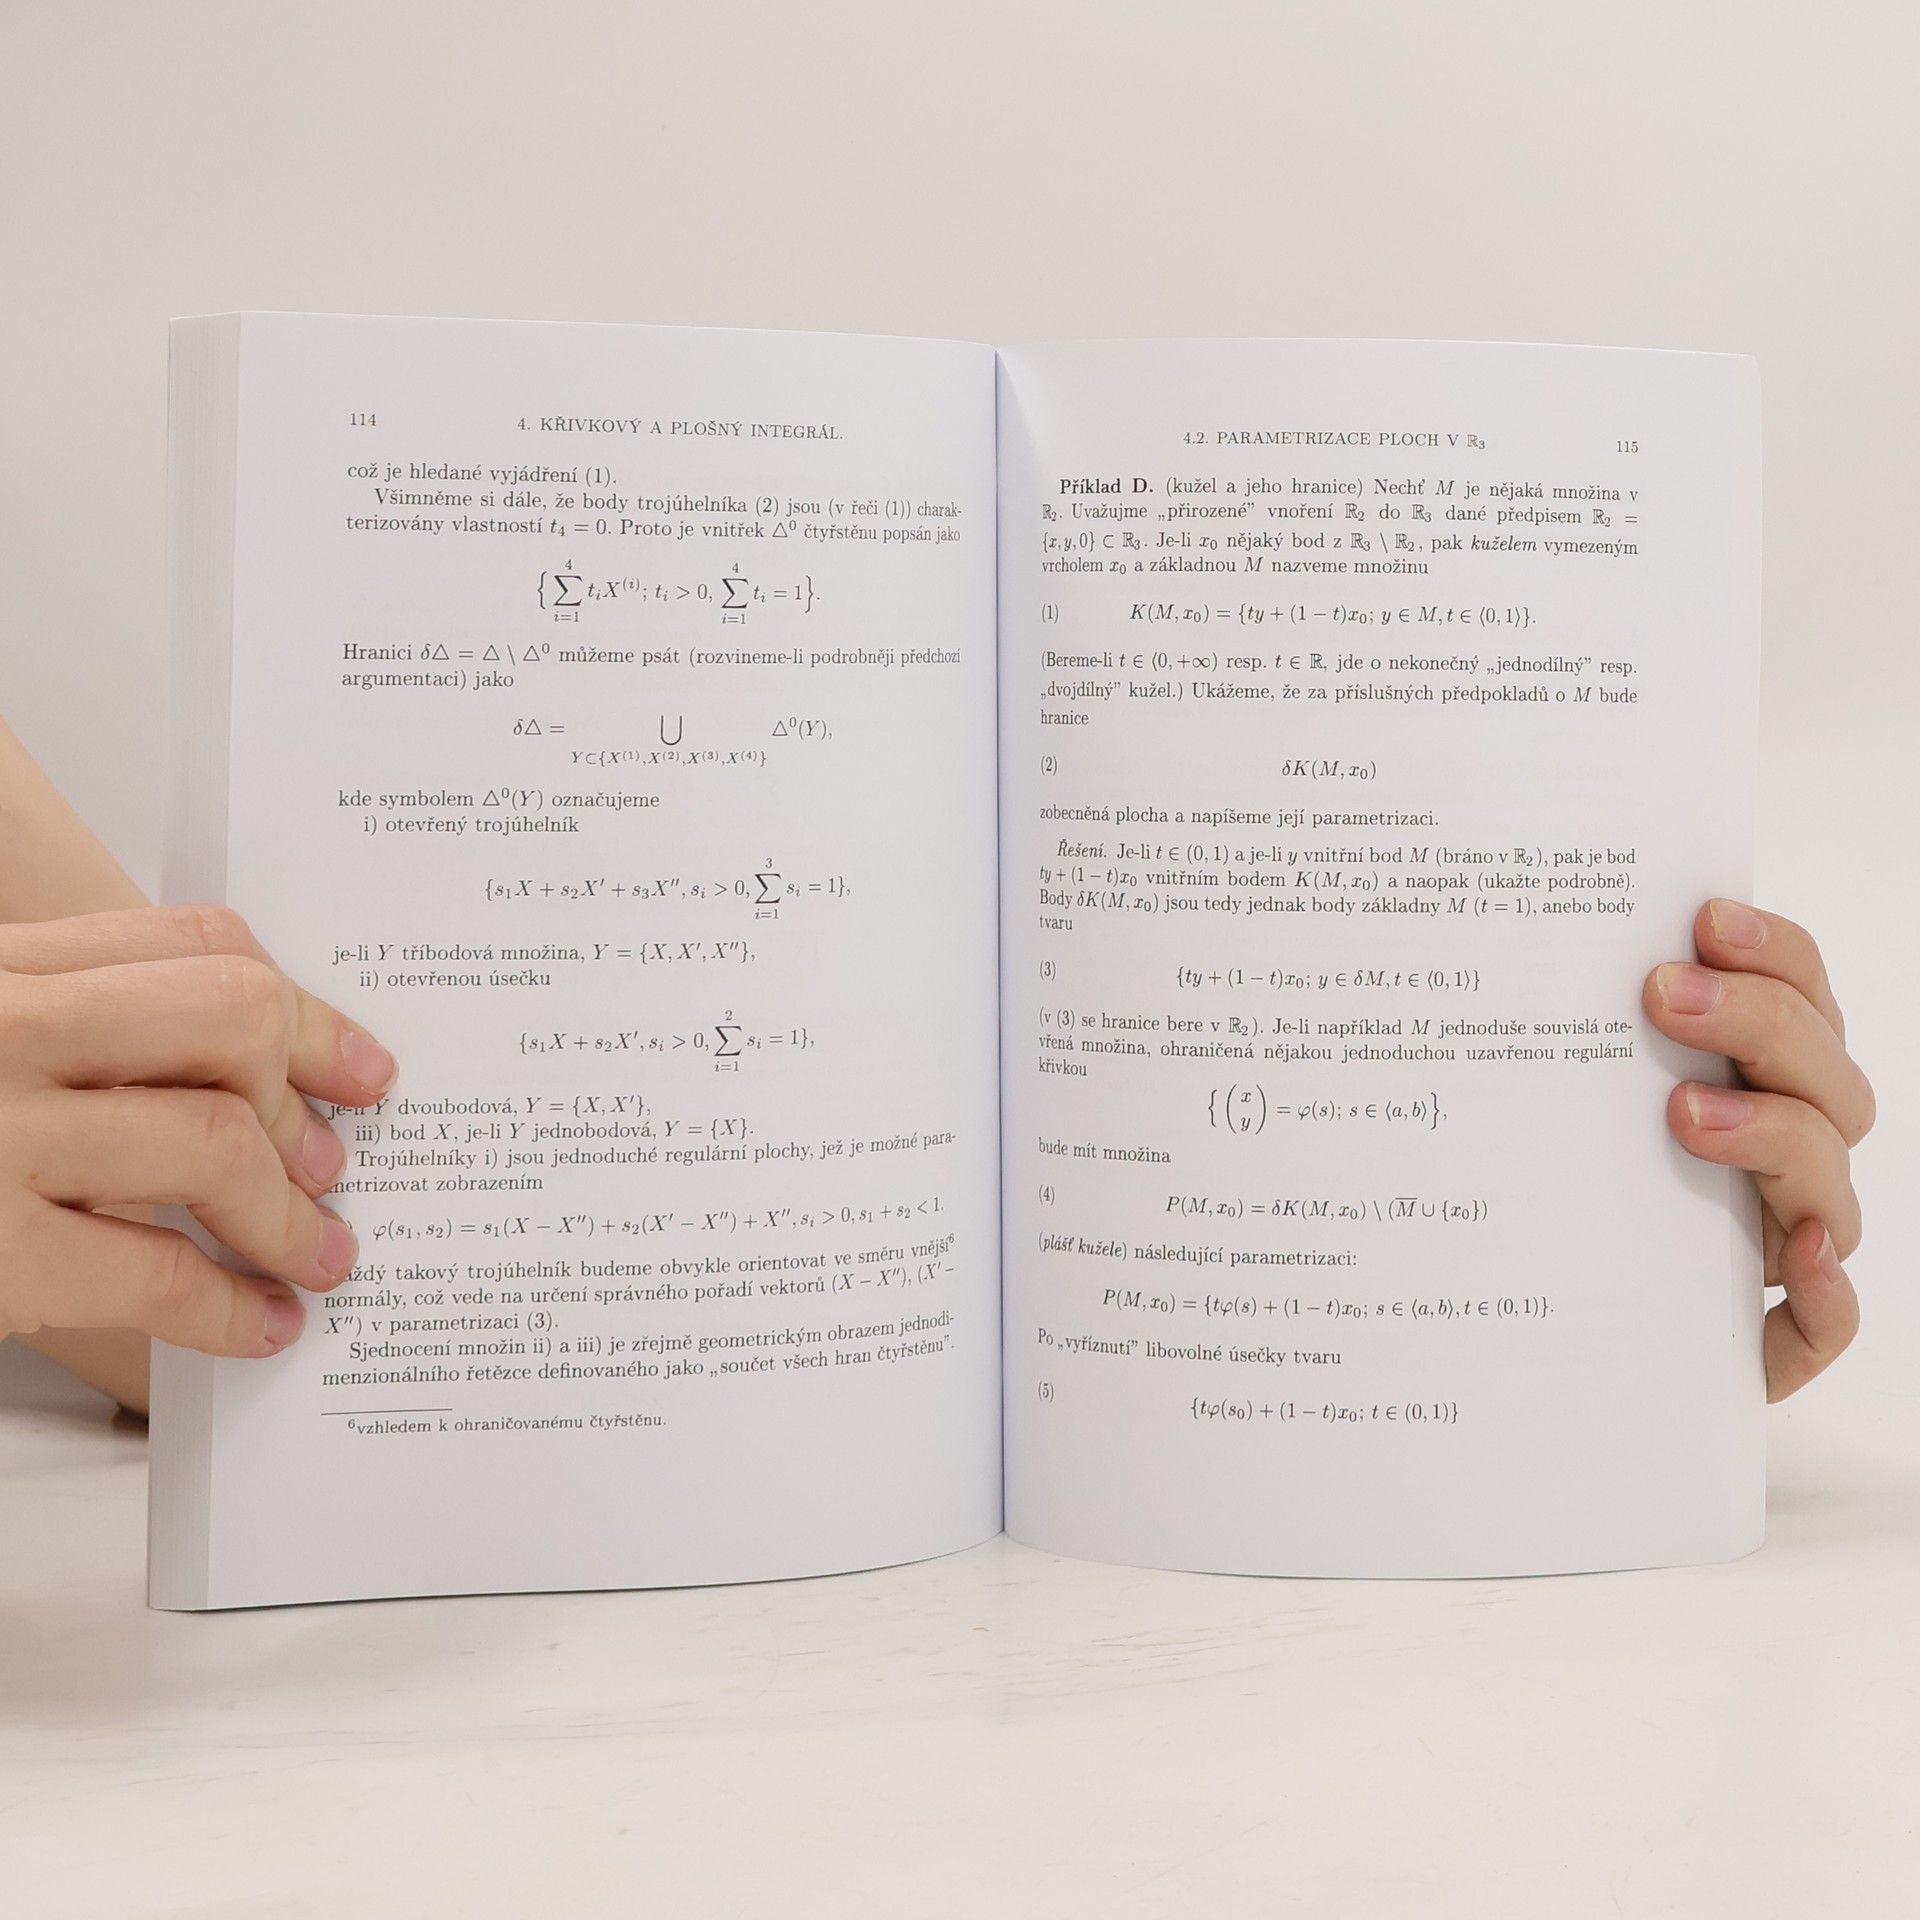 114
4. KŘIVKOVÝ A PLOŠNÝ INTEGRÁL.
což je hledané vyjádření (1).
Všimněme si dále, že body trojúhelníka (2) jsou (v řeči (1)) charak-
terizovány vlastností t₄ = 0. Proto je vnitřek △⁰ čtyřstěnu popsán jako
{ ∑_{i=1}^{4} tᵢX⁽ⁱ⁾; tᵢ > 0, ∑_{i=1}^{4} tᵢ = 1}.
Hranici δ△ = △ \ △⁰ můžeme psát (rozvineme-li podrobněji předchozí
argumentaci) jako
δ△ = ⋃_{Y⊂{X⁽¹⁾,X⁽²⁾,X⁽³⁾,X⁽⁴⁾}} △⁰(Y),
kde symbolem △⁰(Y) označujeme
i) otevřený trojúhelník
{s₁X + s₂X′ + s₃X″, sᵢ > 0, ∑_{i=1}^{3} sᵢ = 1},
je-li Y tříbodová množina, Y = {X, X′, X″},
ii) otevřenou úsečku
{s₁X + s₂X′, sᵢ > 0, ∑_{i=1}^{2} sᵢ = 1},
je-li Y dvoubodová, Y = {X, X′},
iii) bod X, je-li Y jednobodová, Y = {X}.
Trojúhelníky i) jsou jednoduché regulární plochy, jež je možné para-
metrizovat zobrazením
) φ(s₁, s₂) = s₁(X − X″) + s₂(X′ − X″) + X″, sᵢ > 0, s₁ + s₂ < 1.
aždý takový trojúhelník budeme obvykle orientovat ve směru vnější⁶
normály, což vede na určení správného pořadí vektorů (X − X″), (X′ −
X″) v parametrizaci (3).
Sjednocení množin ii) a iii) je zřejmě geometrickým obrazem jednodi-
menzionálního řetězce definovaného jako „součet všech hran čtyřstěnu”.
⁶vzhledem k ohraničovanému čtyřstěnu.
4.2. PARAMETRIZACE PLOCH V ℝ₃
115
Příklad D. (kužel a jeho hranice) Nechť M je nějaká množina v
ℝ₂. Uvažujme „přirozené” vnoření ℝ₂ do ℝ₃ dané předpisem ℝ₂ =
{x, y, 0} ⊂ ℝ₃. Je-li x₀ nějaký bod z ℝ₃ \ ℝ₂, pak kuželem vymezeným
vrcholem x₀ a základnou M nazveme množinu
(1) K(M, x₀) = {ty + (1 − t)x₀; y ∈ M, t ∈ ⟨0, 1⟩}.
(Bereme-li t ∈ ⟨0, +∞) resp. t ∈ ℝ, jde o nekonečný „jednodílný” resp.
„dvojdílný” kužel.) Ukážeme, že za příslušných předpokladů o M bude
hranice
(2) δK(M, x₀)
zobecněná plocha a napíšeme její parametrizaci.
Řešení. Je-li t ∈ (0, 1) a je-li y vnitřní bod M (bráno v ℝ₂), pak je bod
ty + (1 − t)x₀ vnitřním bodem K(M, x₀) a naopak (ukažte podrobně).
Body δK(M, x₀) jsou tedy jednak body základny M (t = 1), anebo body
tvaru
(3) {ty + (1 − t)x₀; y ∈ δM, t ∈ ⟨0, 1⟩}
(v (3) se hranice bere v ℝ₂). Je-li například M jednoduše souvislá ote-
vřená množina, ohraničená nějakou jednoduchou uzavřenou regulární
křivkou
{ (x
y) = φ(s); s ∈ ⟨a, b⟩},
bude mít množina
(4) P(M, x₀) = δK(M, x₀) \ (M̅ ∪ {x₀})
(plášť kužele) následující parametrizaci:
P(M, x₀) = {tφ(s) + (1 − t)x₀; s ∈ ⟨a, b⟩, t ∈ (0, 1)}.
Po „vyříznutí” libovolné úsečky tvaru
(5) {tφ(s₀) + (1 − t)x₀; t ∈ (0, 1)}